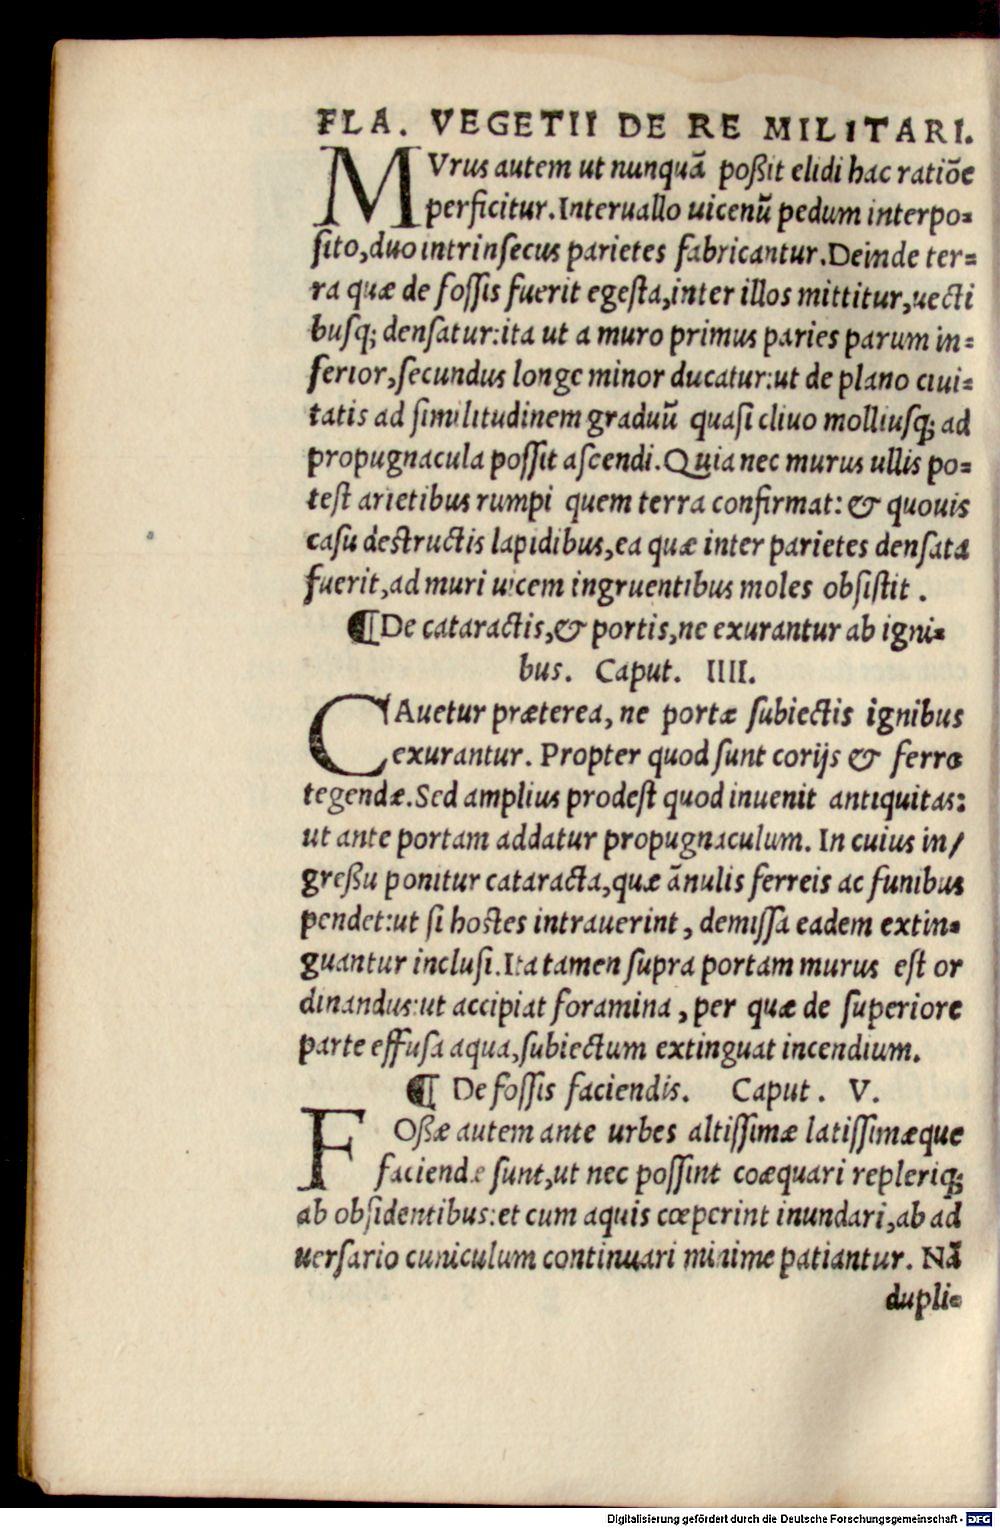 FLA. VEGETII DE RE MILITARI.
MVrus autem ut nunquā poßit elidi hac ratiōe
perficitur. Interuallo uicenū pedum interpo-
ſito, duo intrinſecus parietes fabricantur. Deinde ter-
ra quæ de foſſis fuerit egeſta, inter illos mittitur, uecti
buſq; denſatur: ita ut a muro primus paries parum in-
ferior, ſecundus longe minor ducatur: ut de plano ciui-
tatis ad ſimilitudinem graduū quaſi cliuo molliuſq; ad
propugnacula poſſit aſcendi. Quia nec murus ullis po-
teſt arietibus rumpi quem terra confirmat: & quouis
caſu deſtructis lapidibus, ea quæ inter parietes denſata
fuerit, ad muri uicem ingruentibus moles obſiſtit.
¶ De cataractis, & portis, ne exurantur ab igni-
bus. Caput. IIII.
CAuetur præterea, ne portæ ſubiectis ignibus
exurantur. Propter quod ſunt corijs & ferro
tegendæ. Sed amplius prodeſt quod inuenit antiquitas:
ut ante portam addatur propugnaculum. In cuius in/
greßu ponitur cataracta, quæ ānulis ferreis ac funibus
pendet: ut ſi hoſtes intrauerint, demiſſa eadem extin-
guantur incluſi. Ita tamen ſupra portam murus eſt or
dinandus: ut accipiat foramina, per quæ de ſuperiore
parte effuſa aqua, ſubiectum extinguat incendium.
¶ De foſſis faciendis. Caput. V.
FOßæ autem ante urbes altiſſimæ latiſſimæque
faciendæ ſunt, ut nec poſſint coæquari repleriq;
ab obſidentibus: et cum aquis cœperint inundari, ab ad
uerſario cuniculum continuari minime patiantur. Nā
dupli-
Digitalisierung gefördert durch die Deutsche Forschungsgemeinschaft - DFG